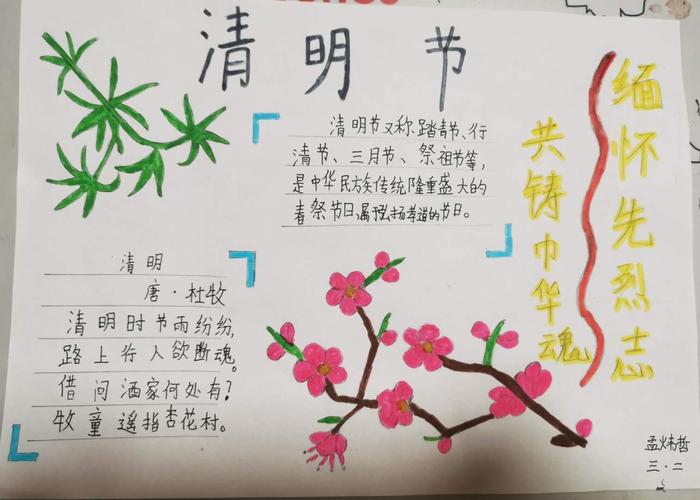 清明节
清明节又称踏青节、行
清节、三月节、祭祖节等,
是中华民族传统隆重盛大的
春祭节日,属弘扬孝道的节日。
缅怀先烈志
共铸巾华魂
清明
唐·杜牧
清明时节雨纷纷,
路上行人欲断魂。
借问酒家何处有?
牧童遥指杏花村。
孟炜哲
三·二